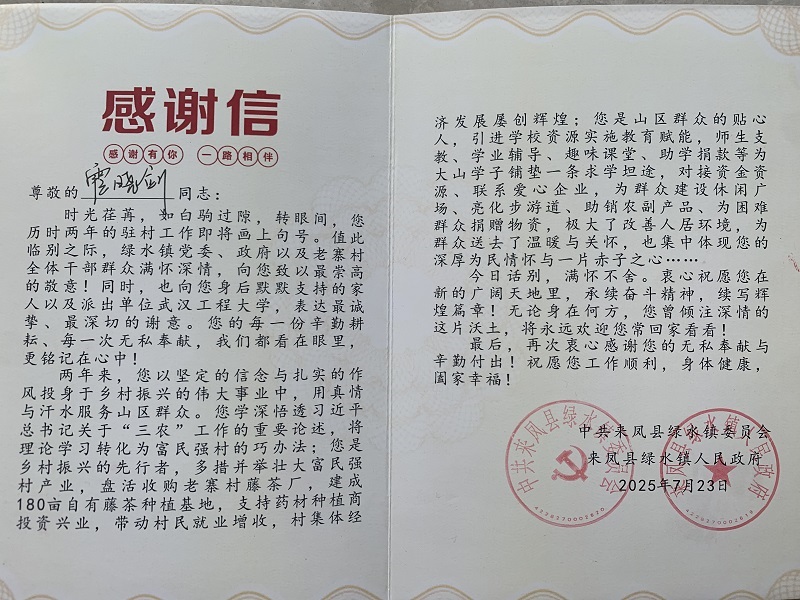 感谢信
感谢有你 一路相伴
尊敬的 晓剑 同志：
时光荏苒，如白驹过隙，转眼间，您
历时两年的驻村工作即将画上句号。值此
临别之际，绿水镇党委、政府以及老寨村
全体干部群众满怀深情，向您致以最崇高
的敬意！同时，也向您身后默默支持的家
人以及派出单位武汉工程大学，表达最诚
挚、最深切的谢意。您的每一份辛勤耕
耘、每一次无私奉献，我们都看在眼里，
更铭记在心中！
两年来，您以坚定的信念与扎实的作
风投身于乡村振兴的伟大事业中，用真情
与汗水服务山区群众。您学深悟透习近平
总书记关于“三农”工作的重要论述，将
理论学习转化为富民强村的巧办法；您是
乡村振兴的先行者，多措并举壮大富民强
村产业，盘活收购老寨村藤茶厂，建成
180亩自有藤茶种植基地，支持药材种植商
投资兴业，带动村民就业增收，村集体经
济发展屡创辉煌；您是山区群众的贴心
人，引进学校资源实施教育赋能，师生支
教、学业辅导、趣味课堂、助学捐款等为
大山学子铺垫一条求学坦途，对接资金资
源、联系爱心企业，为群众建设休闲广
场、亮化步游道、助销农副产品、为困难
群众捐赠物资，极大了改善人居环境，为
群众送去了温暖与关怀，也集中体现您的
深厚为民情怀与一片赤子之心……
今日话别，满怀不舍。衷心祝愿您在
新的广阔天地里，承续奋斗精神，续写辉
煌篇章！无论身在何方，您曾倾注深情的
这片沃土，将永远欢迎您常回家看看！
最后，再次衷心感谢您的无私奉献与
辛勤付出！祝愿您工作顺利，身体健康，
阖家幸福！
中共来凤县绿水镇委员会
来凤县绿水镇人民政府
2025年7月23日
中共来凤县绿水镇委员会
来凤县绿水镇人民政府